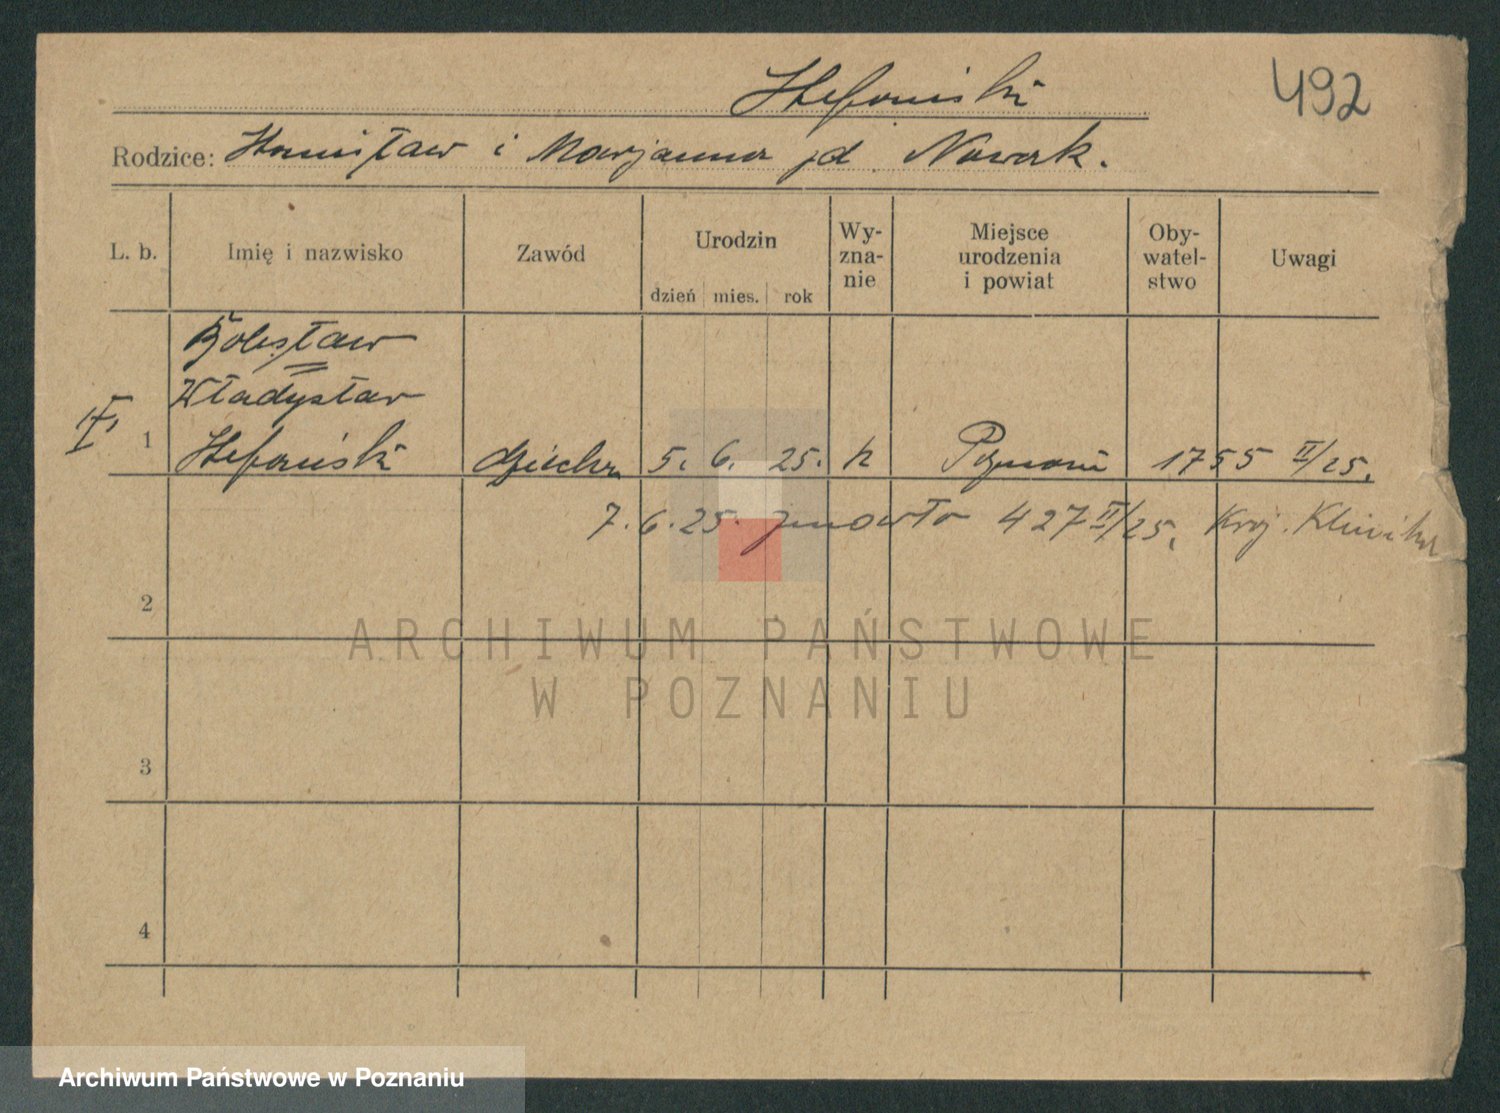 492
Stefański
Rodzice: Stanisław i Marjanna zd Nowak.
L. b. Imię i nazwisko Zawód Urodzin dzień mies. rok Wy-zna-nie Miejsce urodzenia i powiat Oby-watel-stwo Uwagi
Bolesław
Władysław
1 Stefański dziecko 5. 6. 25. k Poznań 1755 II/25.
7.6.25. zmarło 427 II/25,
2
3
4
ARCHIWUM PAŃSTWOWE
W POZNANIU
Archiwum Państwowe w Poznaniu